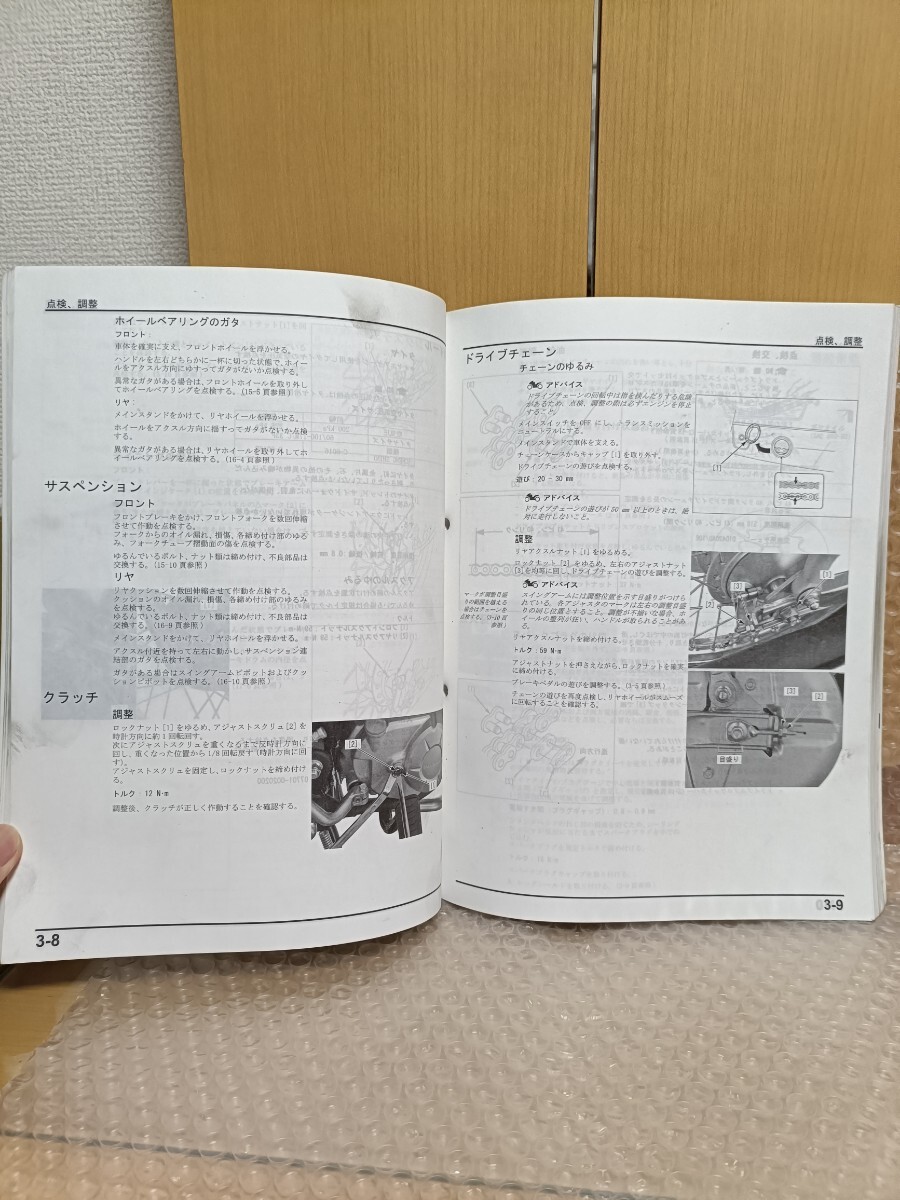 点検、調整
ホイールベアリングのガタ
フロント:
車体を確実に支え、フロントホイールを浮かせる。
ハンドルを左右どちらかに一杯に切った状態で、ホイー
ルをアクスル方向にゆすってガタがないか点検する。
異常なガタがある場合は、フロントホイールを取り外し
てホイールベアリングを点検する。(15-5頁参照)
リヤ:
メインスタンドをかけて、リヤホイールを浮かせる。
ホイールをアクスル方向に揺すってガタがないか点検
する。
異常なガタがある場合は、リヤホイールを取り外してホ
イールベアリングを点検する。(16-4頁参照)
サスペンション
フロント
フロントブレーキをかけ、フロントフォークを数回伸縮
させて作動を点検する。
フォークからのオイル漏れ、損傷、各締め付け部のゆる
み、フォークチューブ摺動面の傷を点検する。
ゆるんでいるボルト、ナット類は締め付け、不良部品は
交換する。(15-10頁参照)
リヤ
リヤクッションを数回伸縮させて作動を点検する。
クッションのオイル漏れ、損傷、各締め付け部のゆるみ
を点検する。
ゆるんでいるボルト、ナット類は締め付け、不良部品は
交換する。(16-9頁参照)
メインスタンドをかけて、リヤホイールを浮かせる。
アクスル付近を持って左右に動かし、サスペンション連
結部のガタを点検する。
ガタがある場合はスイングアームピボットおよびクッ
ションピボットを点検する。(16-10頁参照)
クラッチ
調整
ロックナット[1]をゆるめ、アジャストスクリュ[2]を
時計方向に約1回転回す。
次にアジャストスクリュを重くなるまで反時計方向に
回し、重くなった位置から1/8回転戻す(時計方向に回
す)。
アジャストスクリュを固定し、ロックナットを締め付け
る。
トルク:12 N・m
調整後、クラッチが正しく作動することを確認する。
[2]
[1]
3-8
点検、調整
ドライブチェーン
チェーンのゆるみ
アドバイス
ドライブチェーンの回転中は指を挟んだりする危険
があるため、点検、調整の際は必ずエンジンを停止
すること。
メインスイッチを OFF にし、トランスミッションを
ニュートラルにする。
メインスタンドで車体を支える。
チェーンケースからキャップ[1]を取り外す。
ドライブチェーンの遊びを点検する。
遊び:20 - 30 mm
アドバイス
ドライブチェーンの遊びが 50 mm 以上のときは、絶
対に走行しないこと。
[1]
調整
リヤアクスルナット[1]をゆるめる。
ロックナット[2]をゆるめ、左右のアジャストナット
[3]を均等に回し、ドライブチェーンの遊びを調整する。
マークが調整目盛
りの範囲を越える
場合はチェーンを
点検する。(3-10頁
参照)
アドバイス
スイングアームには調整位置を示す目盛りがつけら
れている。各アジャスタのマークは左右の調整目盛
りの同じ位置とすること。調整が不揃いな場合、ホ
イールの整列が狂い、ハンドルが取られることがあ
る。
リヤアクスルナットを締め付ける。
トルク:59 N・m
アジャストナットを押さえながら、ロックナットを確実
に締め付ける。
ブレーキペダルの遊びを調整する。(3-5頁参照)
チェーンの遊びを再度点検し、リヤホイールがスムーズ
に回転することを確認する。
[3]
[1]
[2]
[3]
[2]
目盛り
3-9